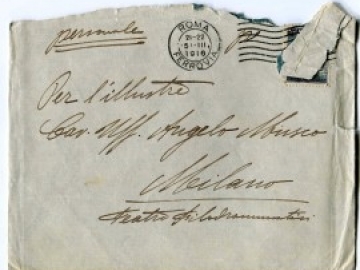 personale
ROMA
21-22
31-III
1916
FERROVIA
Per l'illustre
Cav. Uff. Angelo Musco
Milano
Teatro Filodrammatici